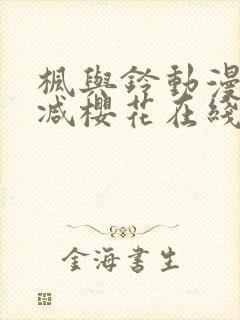 楓與鈴動漫
減櫻花在綫
金海書生